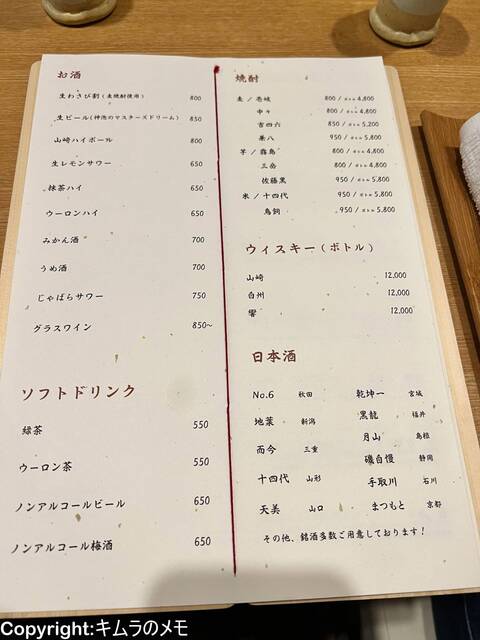 お酒
生わさび割(麦焼酎使用) 800
生ビール(神泡のマスターズドリーム) 850
山崎ハイボール 800
生レモンサワー 650
抹茶ハイ 650
ウーロンハイ 650
みかん酒 700
うめ酒 700
じゃばらサワー 750
グラスワイン 850~
ソフトドリンク
緑茶 550
ウーロン茶 550
ノンアルコールビール 650
ノンアルコール梅酒 650
焼酎
麦 / 壱岐 800 / ボトル 4,800
中々 800 / ボトル 4,800
吉四六 850 / ボトル 5,200
兼八 950 / ボトル 5,800
芋 / 霧島 800 / ボトル 4,800
三岳 800 / ボトル 4,800
佐藤黒 950 / ボトル 5,800
米 / 十四代 950 / ボトル 5,800
鳥飼 950 / ボトル 5,800
ウイスキー(ボトル)
山崎 12,000
白州 12,000
響 12,000
日本酒
No.6 秋田
地葉 新潟
而今 三重
十四代 山形
天美 山口
乾坤一 宮城
黒龍 福井
月山 島根
磯自慢 静岡
手取川 石川
まつもと 京都
その他、銘酒多数ご用意しております!
Copyright:キムラのメモ